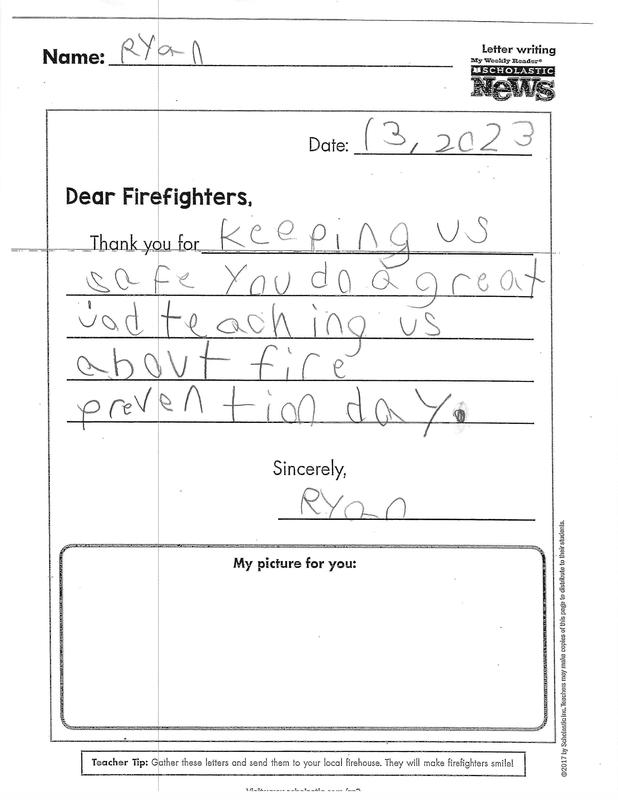 Letter writing
Name: RYan
My Weekly Reader®
SCHOLASTIC
NeWS
Date: 13, 2023
Dear Firefighters,
Thank you for keeping us
safe You do a great
jod teaching us
about fire
prevention day.
Sincerely,
RYan
My picture for you:
Teacher Tip: Gather these letters and send them to your local firehouse. They will make firefighters smile!
©2017 by Scholastic Inc. Teachers may make copies of this page to distribute to their students.